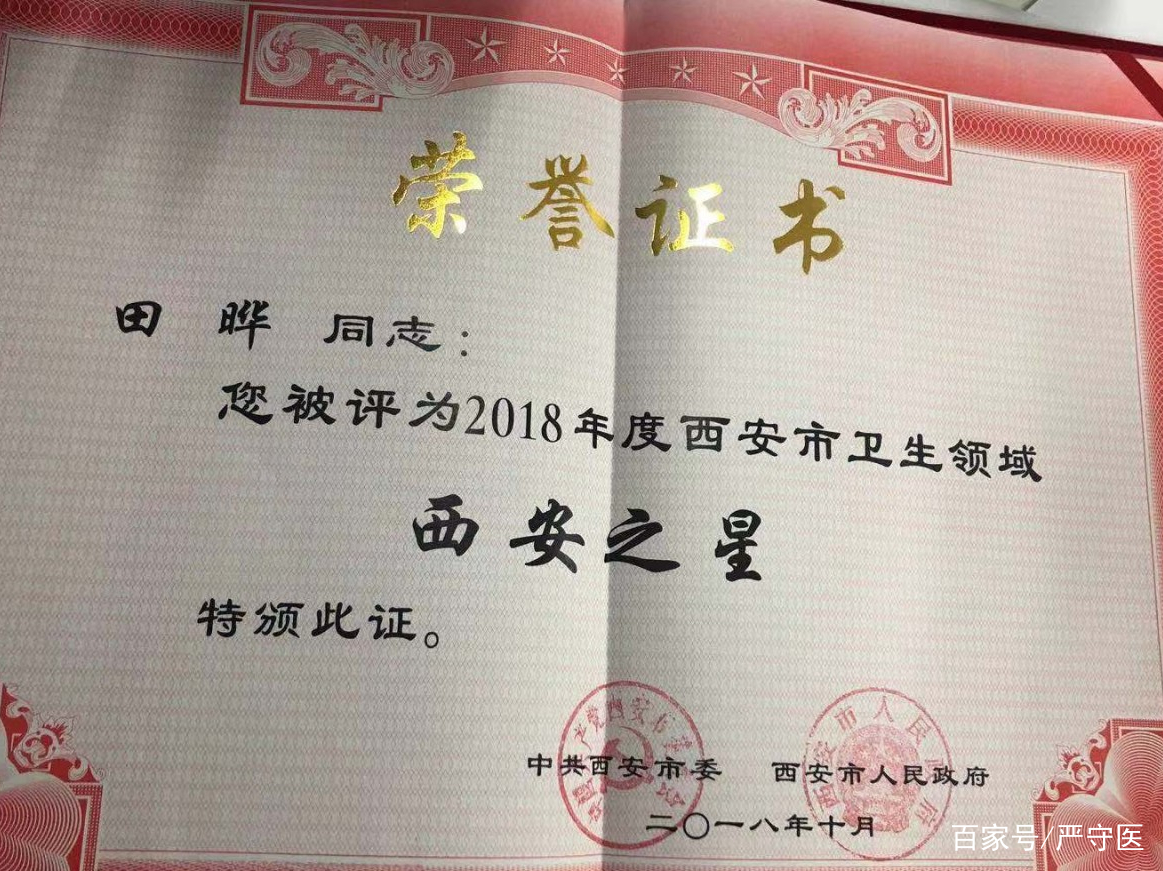 荣誉证书
田 晔 同志：
您被评为2018年度西安市卫生领域
西安之星
特颁此证。
中共西安市委 西安市人民政府
二〇一八年十月
百家号/严守医